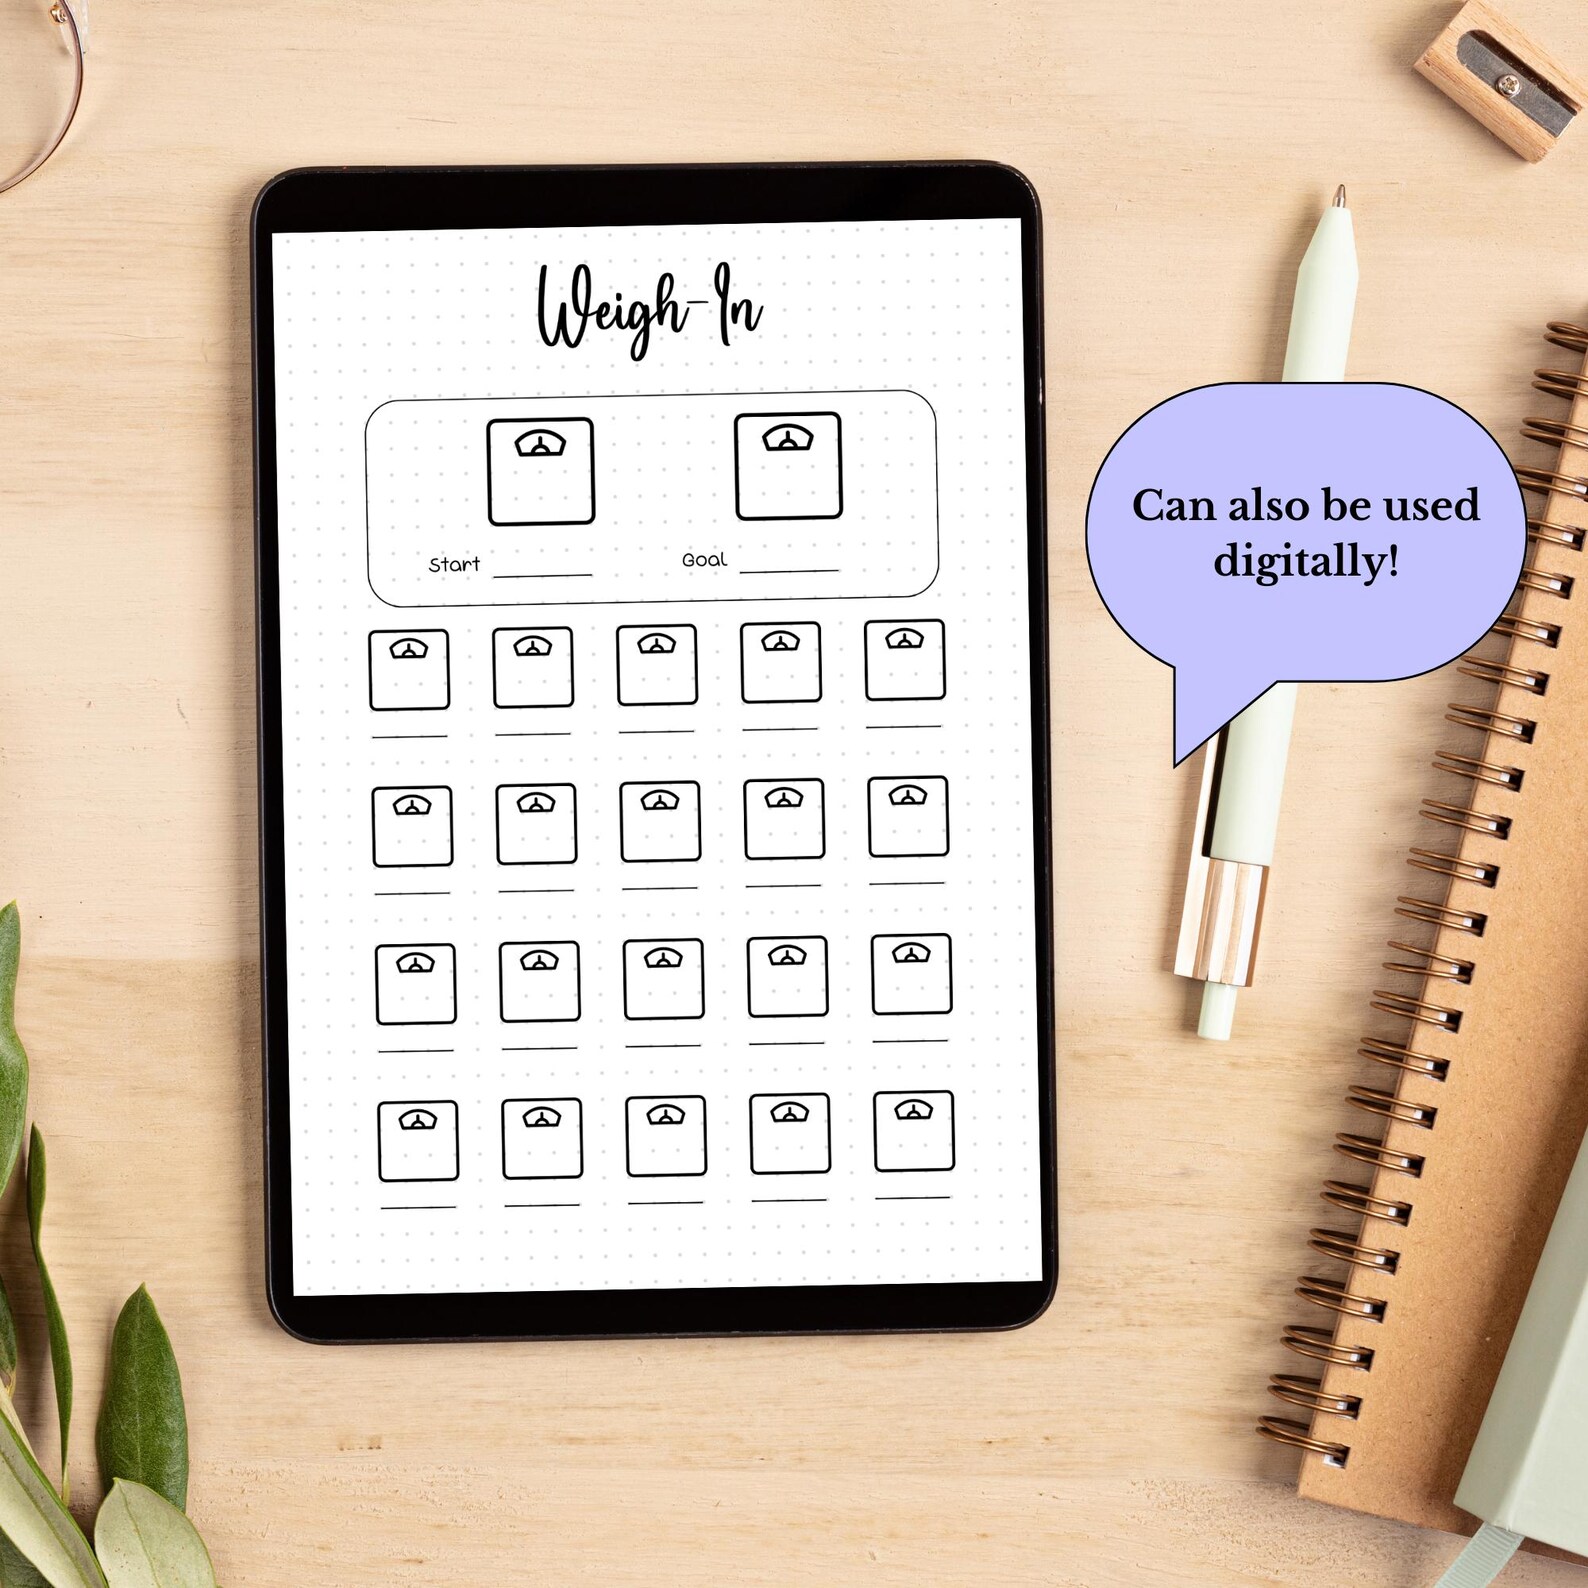 Weigh-In
Start
Goal
Can also be used
digitally!